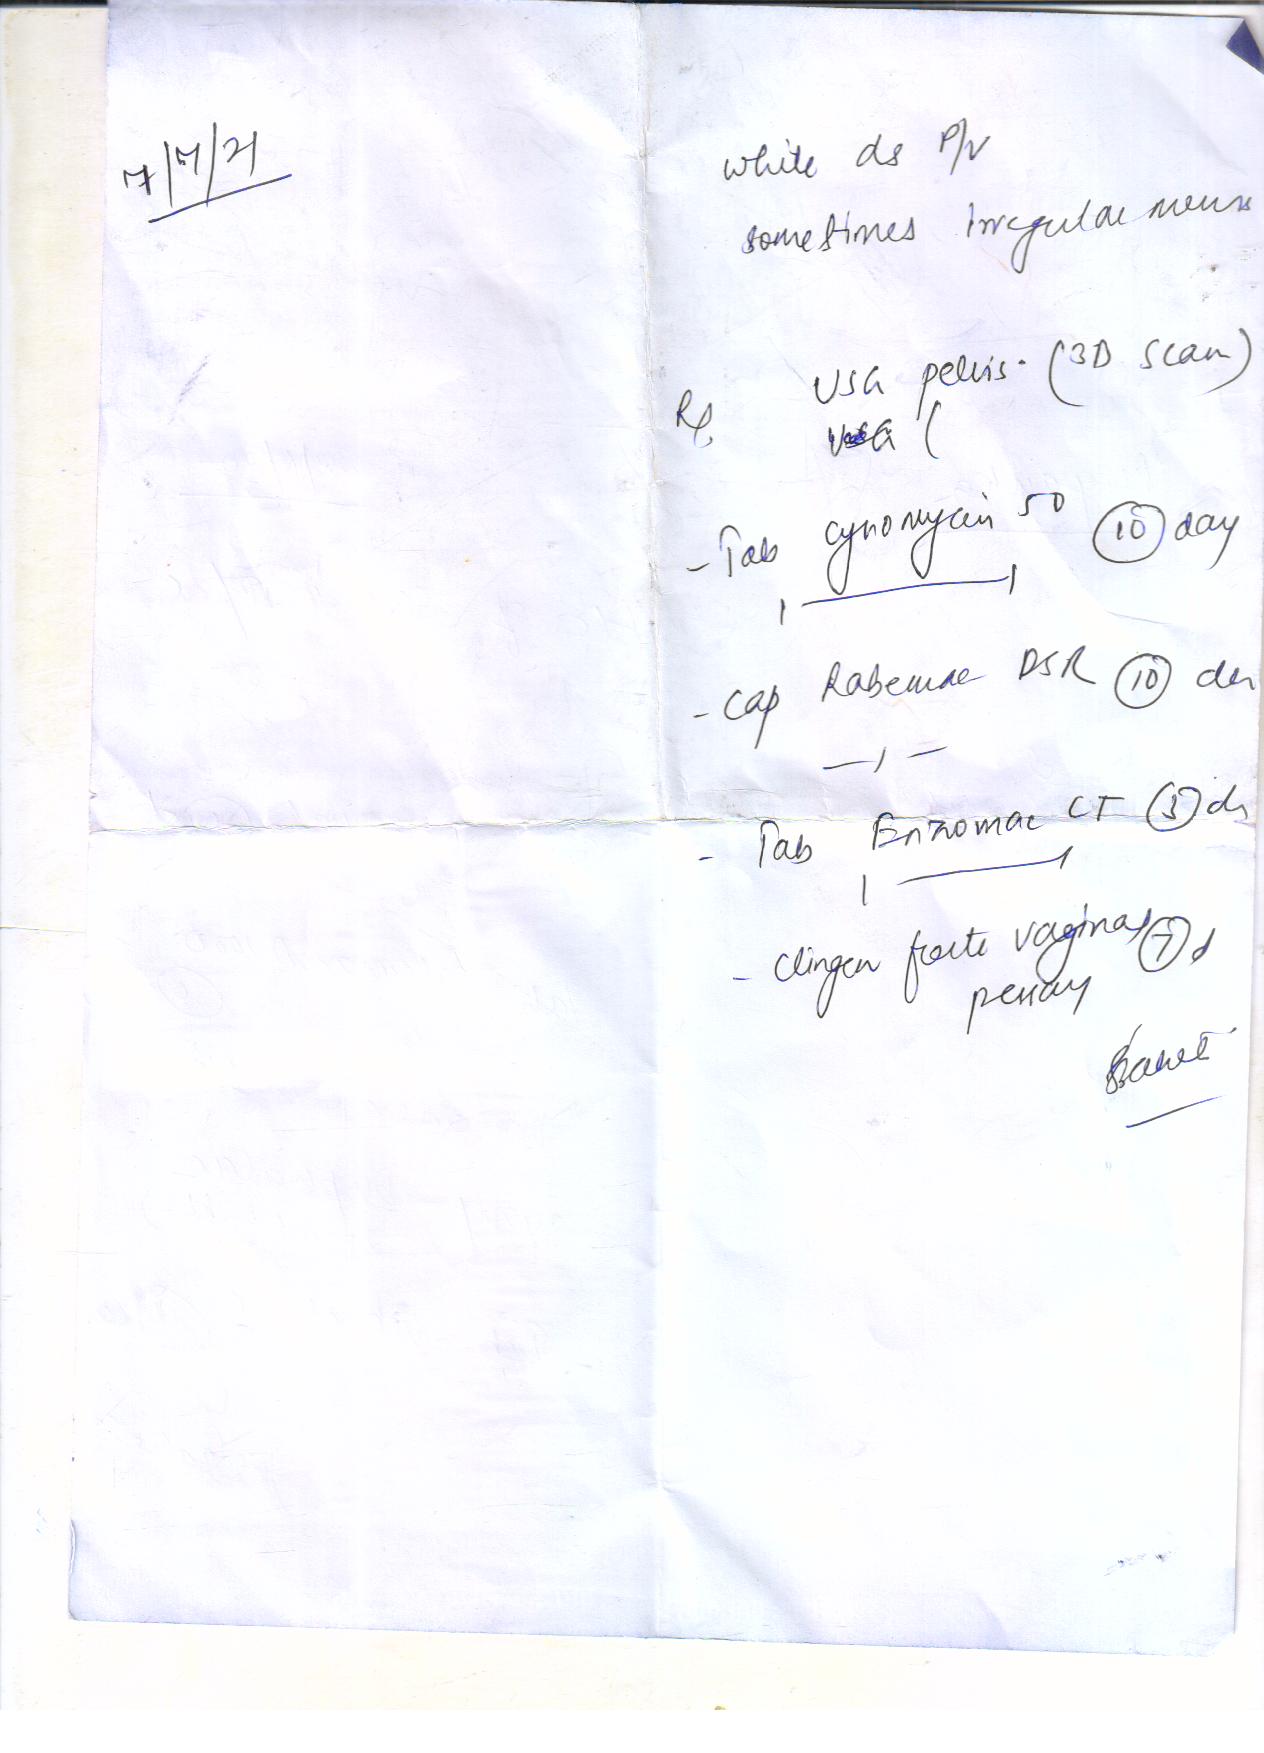 7/7/21
white ds P/V
sometimes irregular mens
USG pelvis. (3D scan)
Rx
USG (
- Tab cynomycin 50 (10) day
1 —— 1
- Cap Rabemac DSR (10) da
— 1 —
- Tab Enzomac CT (5) ds
1 —— 1
- Clingen forte vaginal (7) d
pessary